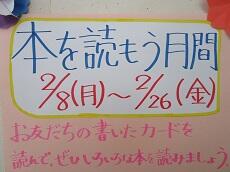 本を読もう月間
2/8(月)～2/26(金)
お友だちの書いたカードを
読んで、ぜひいろいろな本を読みましょう。